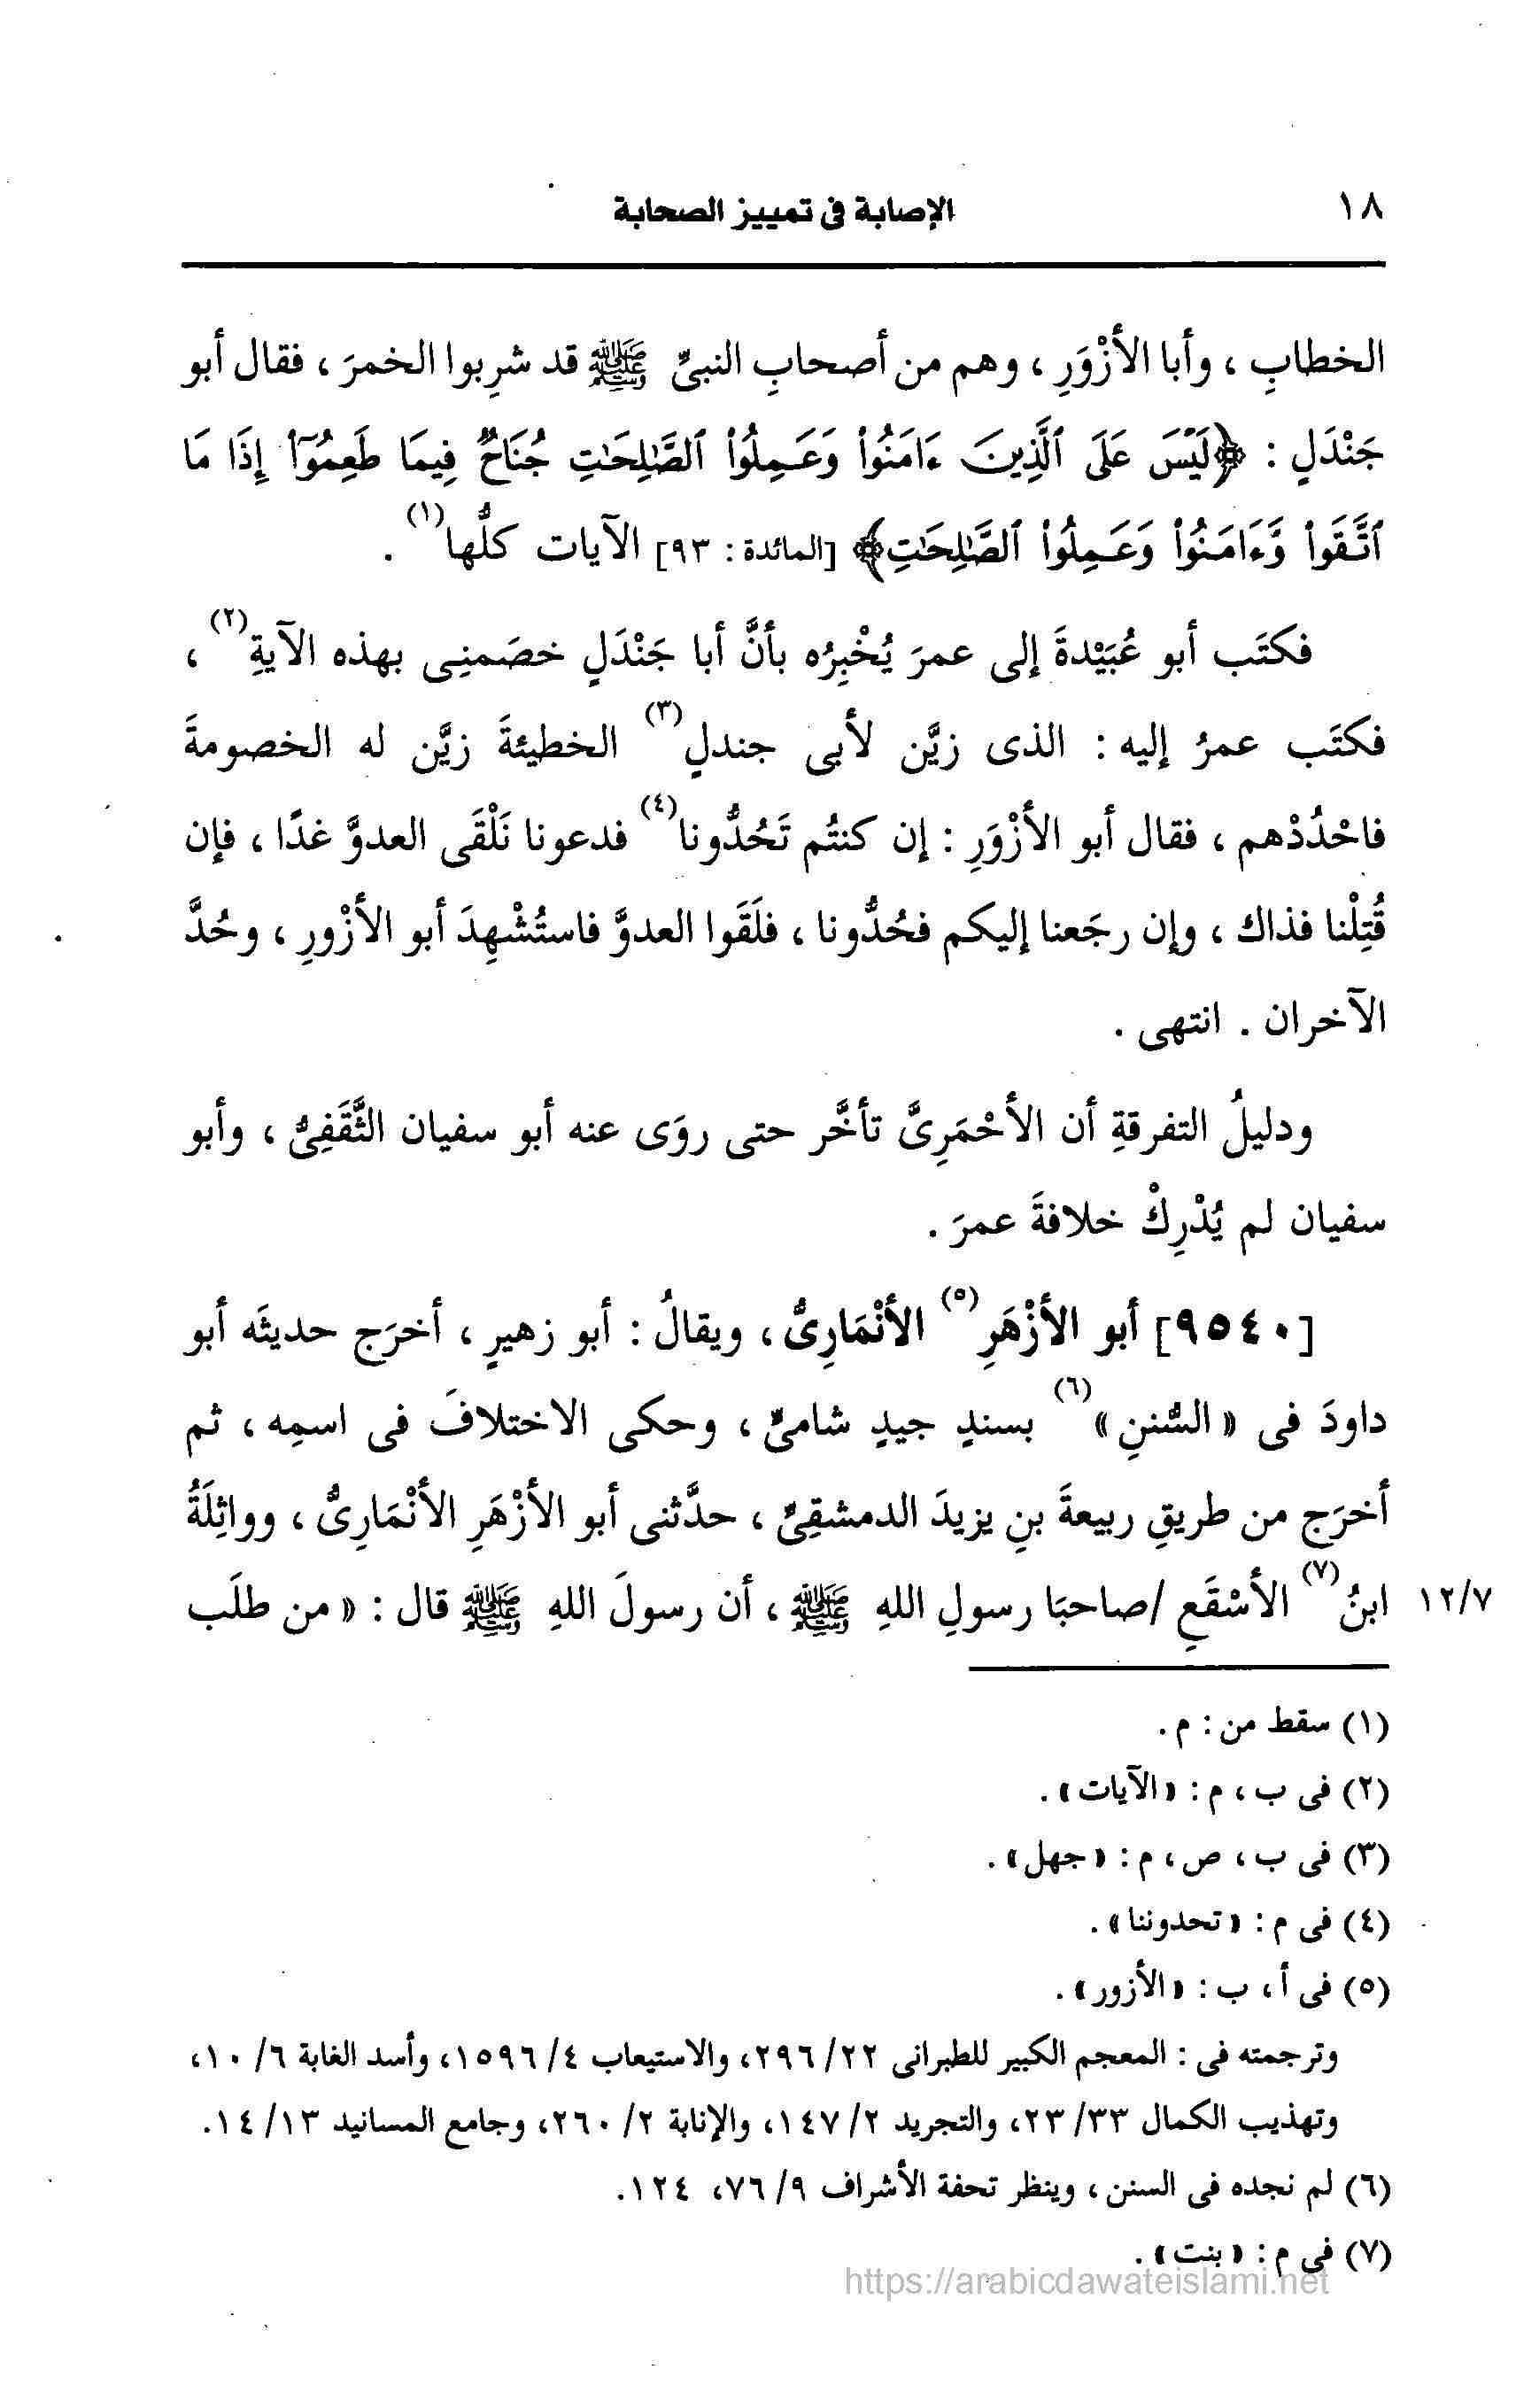 ١٨ الإصابة فى تمييز الصحابة
الخطابِ ، وأبا الأزْوَرِ ، وهم من أصحابِ النبىِّ ﷺ قد شرِبوا الخمرَ ، فقال أبو
جَنْدَلٍ : ﴿لَيْسَ عَلَى ٱلَّذِينَ ءَامَنُوا۟ وَعَمِلُوا۟ ٱلصَّٰلِحَٰتِ جُنَاحٌ فِيمَا طَعِمُوٓا۟ إِذَا مَا
ٱتَّقَوا۟ وَّءَامَنُوا۟ وَعَمِلُوا۟ ٱلصَّٰلِحَٰتِ﴾ [المائدة : ٩٣] الآيات كلَّها(١) .
فكتَب أبو عُبَيْدةَ إلى عمرَ يُخْبِرُه بأنَّ أبا جَنْدَلٍ خصَمنِى بهذه الآيةِ(٢) ،
فكتَب عمرُ إليه : الذى زيَّن لأبى جندلٍ(٣) الخطيئةَ زيَّن له الخصومةَ
فاحْدُدْهم ، فقال أبو الأزْوَرِ : إن كنتُم تَحُدُّونا(٤) فدعونا نَلْقَى العدوَّ غدًا ، فإن
قُتِلْنا فذاك ، وإن رجَعنا إليكم فحُدُّونا ، فلَقَوا العدوَّ فاستُشْهِدَ أبو الأزْورِ ، وحُدَّ
الآخران . انتهى .
ودليلُ التفرقةِ أن الأحْمَرِىَّ تأخَّر حتى روَى عنه أبو سفيان الثَّقَفِىُّ ، وأبو
سفيان لم يُدْرِكْ خلافةَ عمرَ .
[٩٥٤٠] أبو الأزْهَرِ(٥) الأنْمَارِىُّ ، ويقالُ : أبو زهيرٍ ، أخرَج حديثَه أبو
داودَ فى « السُّننِ »(٦) بسندٍ جيدٍ شامىٍّ ، وحكى الاختلافَ فى اسمِه ، ثم
أخرَج من طريقِ ربيعةَ بنِ يزيدَ الدمشقِىِّ ، حدَّثنى أبو الأزْهَرِ الأنْمَارِىُّ ، وواثِلَةُ
١٢/٧ ابنُ(٧) الأسْقَعِ /صاحبَا رسولِ اللهِ ﷺ ، أن رسولَ اللهِ ﷺ قال : « من طلَب
(١) سقط من : م .
(٢) فى ب ، م : « الآيات » .
(٣) فى ب ، ص ، م : « جهل » .
(٤) فى م : « تحدوننا » .
(٥) فى أ ، ب : « الأزور » .
وترجمته فى : المعجم الكبير للطبرانى ٢٢/ ٢٩٦، والاستيعاب ٤/ ١٥٩٦، وأسد الغابة ٦/ ١٠،
وتهذيب الكمال ٣٣/ ٢٣، والتجريد ٢/ ١٤٧، والإنابة ٢/ ٢٦٠، وجامع المسانيد ١٣/ ١٤.
(٦) لم نجده فى السنن ، وينظر تحفة الأشراف ٩/ ٧٦، ١٢٤.
(٧) فى م : « بنت » .
https://arabicdawateislami.net